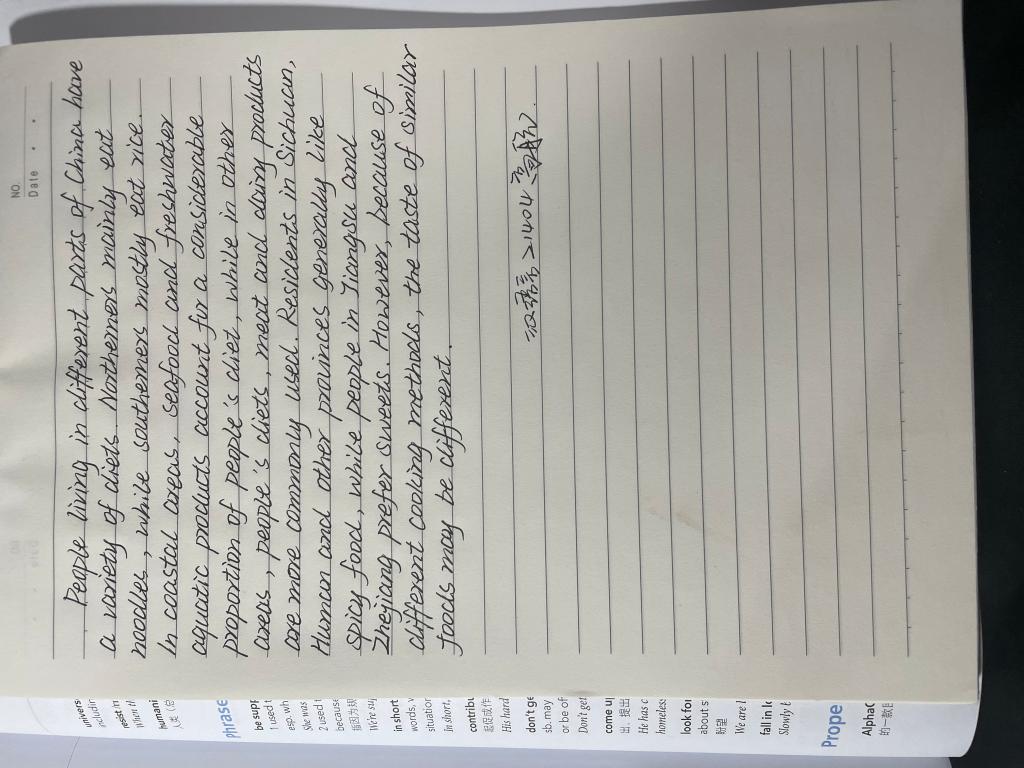 NO.
Date
People living in different parts of China have
a variety of diets. Northerners mainly eat
noodles, while southerners mostly eat rice.
In coastal areas, seafood and freshwater
aquatic products account for a considerable
proportion of people's diet, while in other
areas, people's diets, meat and dairy products
are more commonly used. Residents in Sichuan,
Human and other provinces generally like
spicy food, while people in Jiangsu and
Zhejiang prefer sweets. However, because of
different cooking methods, the taste of similar
foods may be different.
21404
univers
includin
resist in
When th
humani
Phrase
be supp
1 used t
esp. wh
She was
2 used t
because
We're sup
in short
words, v
situation
In short,
contribu
His hard
don't ge
sb. may
or be of
Don't get
come up
出; 提出
He has c
homeless
look for
about s
盼望
We are l
fall in l
Slowly t
Prope
AlphaG
的一款